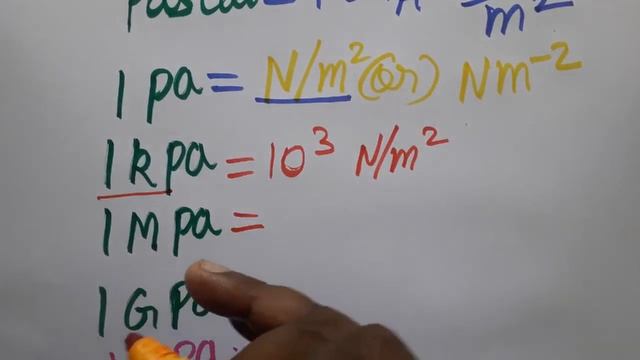 pascal =
m²
1 pa = N/m² (or) Nm⁻²
1 kpa = 10³ N/m²
1 M pa =
1 G p
pa